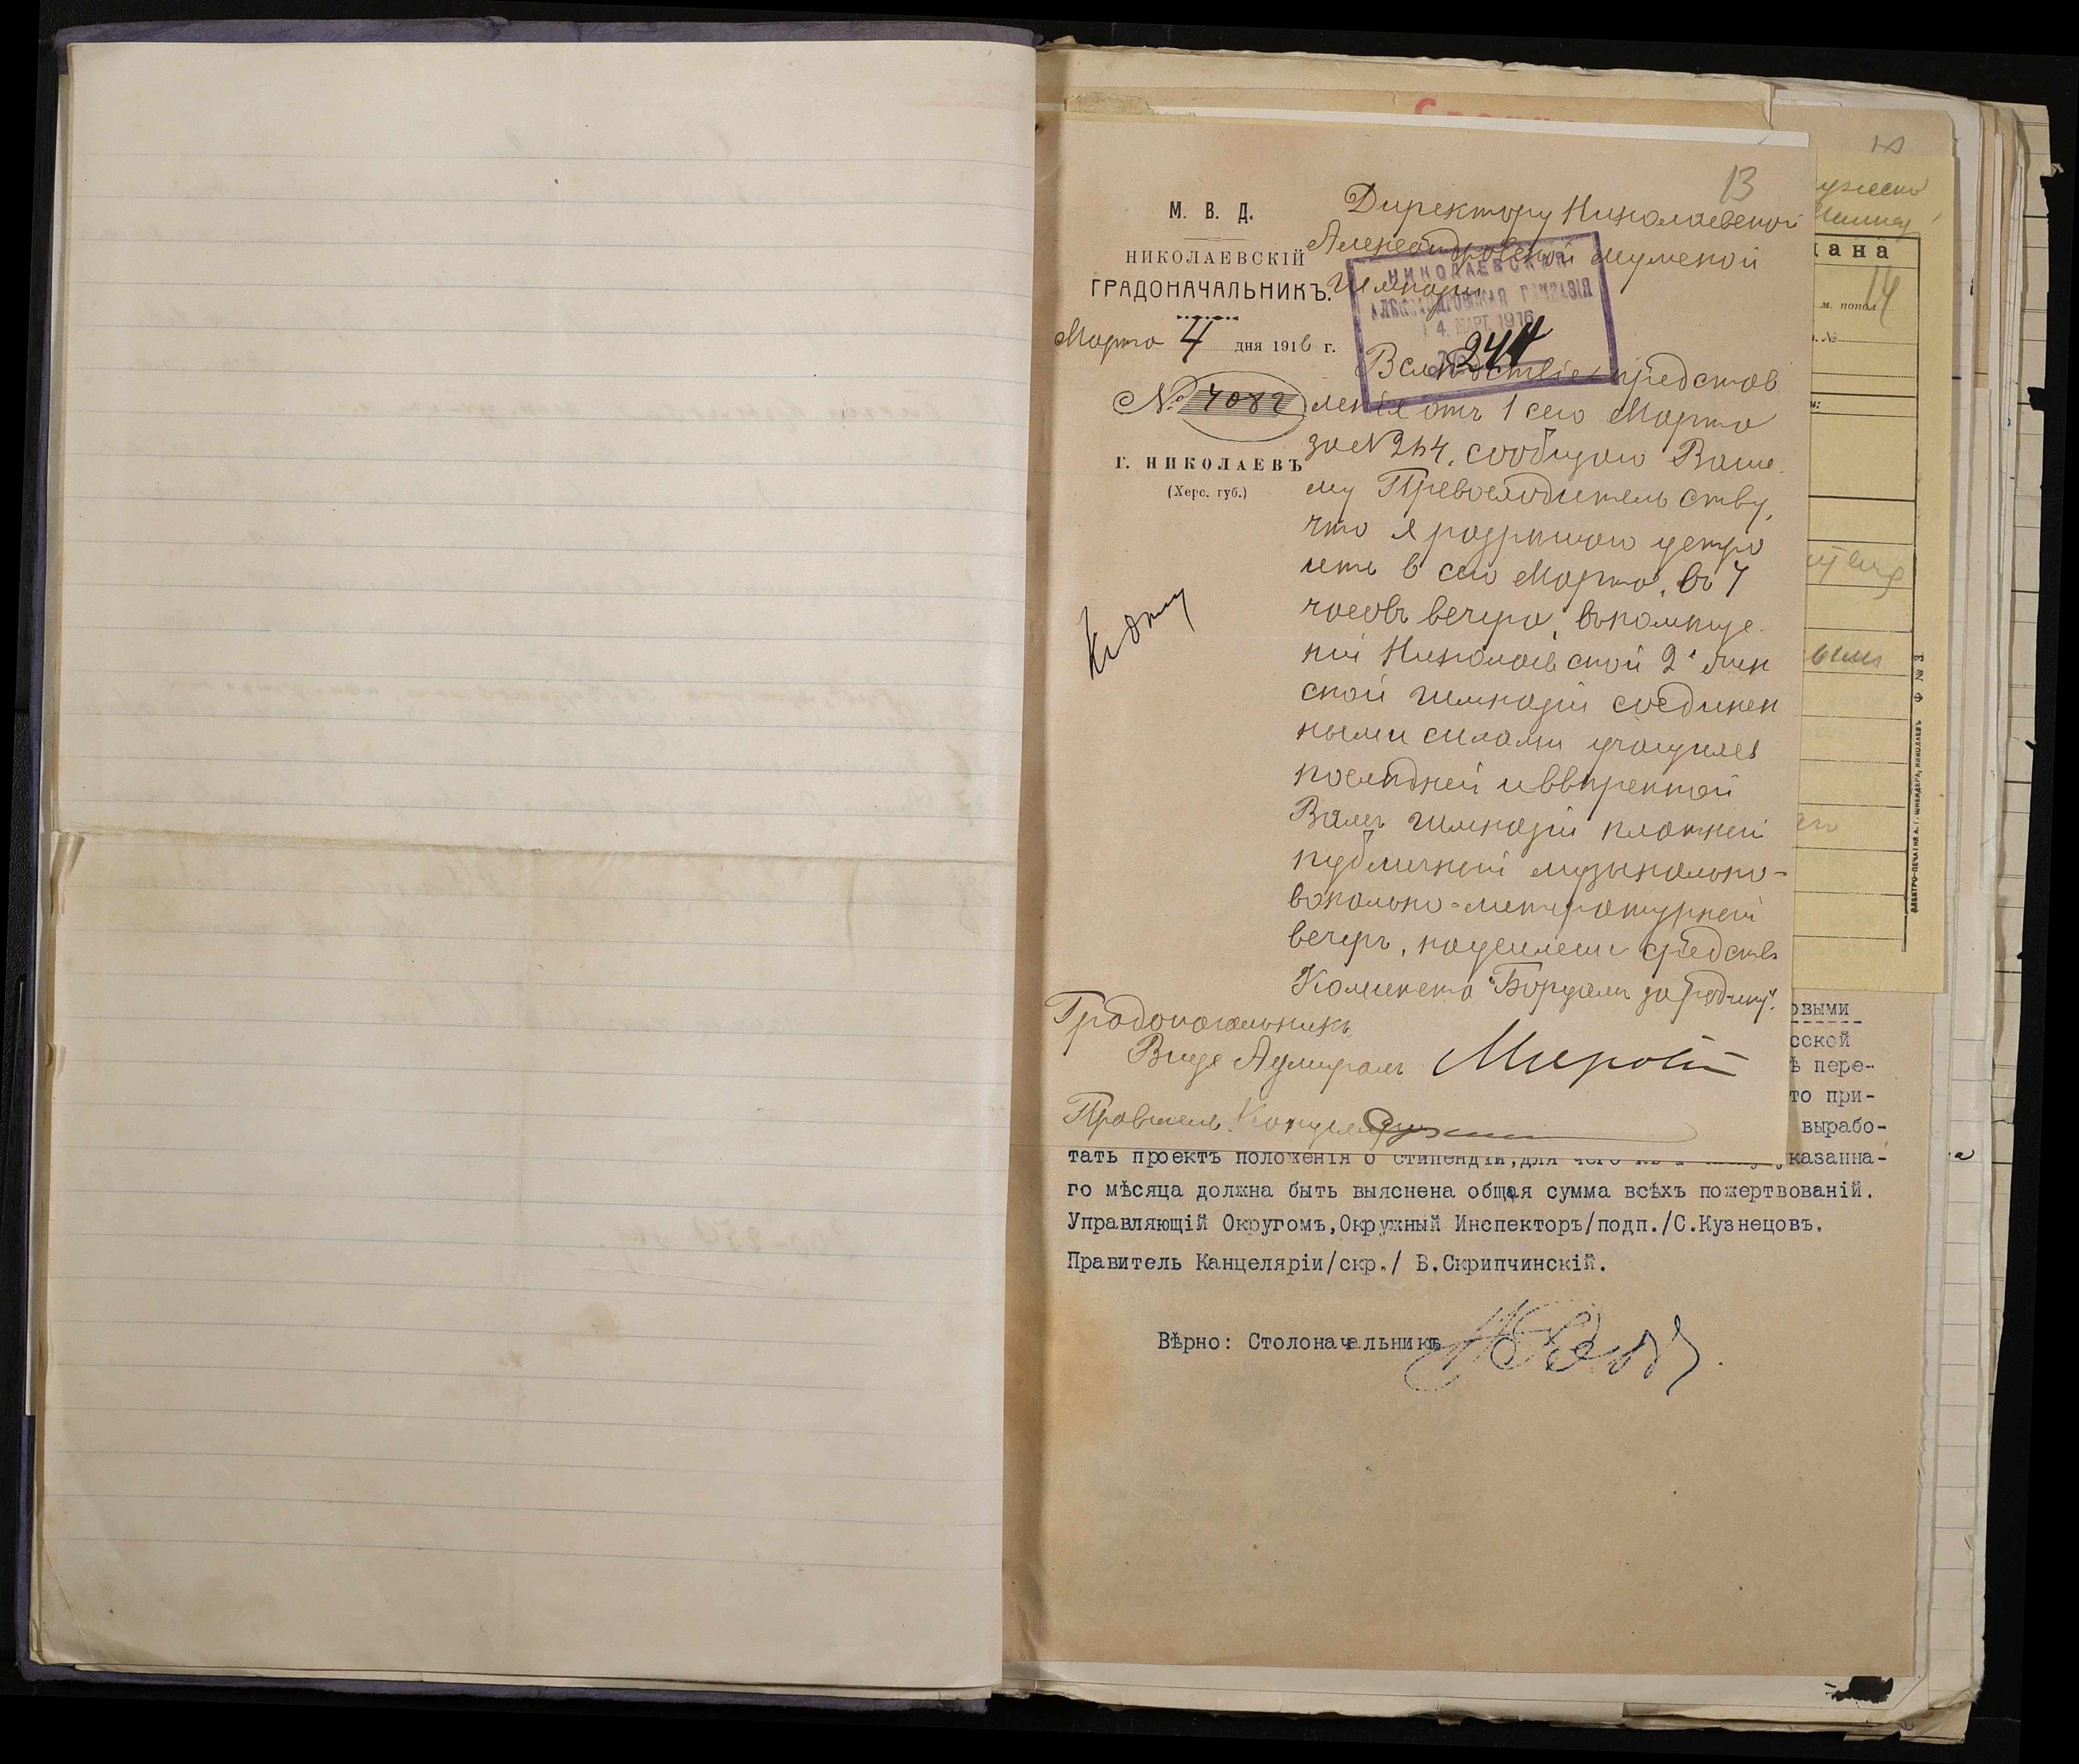 13
М. В. Д.
НИКОЛАЕВСКІЙ
ГРАДОНАЧАЛЬНИКЪ.
Марта 4 дня 1916 г.
№ 4082
Г. НИКОЛАЕВЪ
(Херс. губ.)
Къ дѣлу
Директору Николаевской
Александровской мужской
Гимназіи
НИКОЛАЕВСКАЯ
АЛЕКСАНДРОВСКАЯ ГИМНАЗІЯ
4. МАРТ. 1916
244
Вслѣдствіе представ
ленія отъ 1 сего Марта
за № 264, сообщаю Ваше
му Превосходительству,
что я разрѣшаю устро
ить 6 сего Марта, въ 7
часовъ вечера, въ помѣще
ніи Николаевской 2й жен
ской гимназіи соединен
ными силами учащихся
послѣдней и ввѣренной
Вамъ гимназіи платный
публичный музыкально-
вокально-литературный
вечеръ, на усиленіе средствъ
Комитета "Борцамъ за родину".
Градоначальникъ,
Вице Адмиралъ
Правитель Канцеляріи
14
лана
м. попол.
№
ЭЛЕКТРО-ПЕЧАТНЯ А. Г. ШНЕЙДЕРА, НИКОЛАЕВЪ Ф № 3.
овыми
сской
ѣ пере-
то при-
вырабо-
тать проектъ положенія о стипендіи, для чего указанна-
го мѣсяца должна быть выяснена общая сумма всѣхъ пожертвованій.
Управляющій Округомъ, Окружный Инспекторъ/подп./С.Кузнецовъ.
Правитель Канцеляріи/скр./ В.Скрипчинскій.
Вѣрно: Столоначальникъ